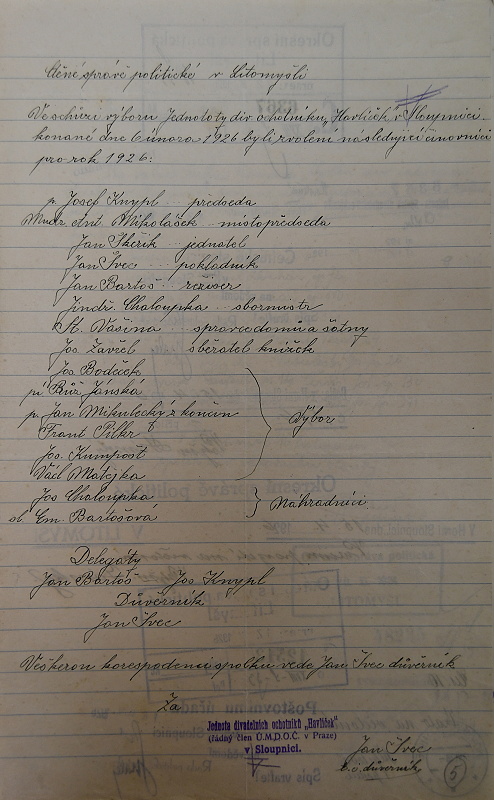 Ctěné správě politické v Litomyšli
Ve schůzi výboru Jednoty div. ochotníků „Havlíček" v Sloupnici
konané dne 6 února 1926 byli zvoleni následující činovníci
pro rok 1926:
p. Josef Knypl předseda
Mudr. Ant. Mikolášek místopředseda
Jan Škeřík jednatel
Jan Švec pokladník
Jan Bartoš režiser
Jindř. Chaloupka sbormistr
St. Vašina správce domu a šatny
Jos. Zavřel sběratel knížek
Jos. Bodeček
pí Růž. Jánská
p. Jan Mikulecký z končin
Frant. Pilkr
Jos. Kumpošt
Václ. Matejka
Výbor
Jos. Chaloupka
sl. Em. Bartošová
Náhradníci
Delegáty
Jan Bartoš Jos. Knypl
Důvěrník
Jan Švec
Veškerou korespodenci spolku vede Jan Švec důvěrník
Za
Jednota divadelních ochotníků „Havlíček"
(řádný člen Ú.M.D.O.Č. v Praze)
v Sloupnici.
Jan Švec
t. č. důvěrník
5